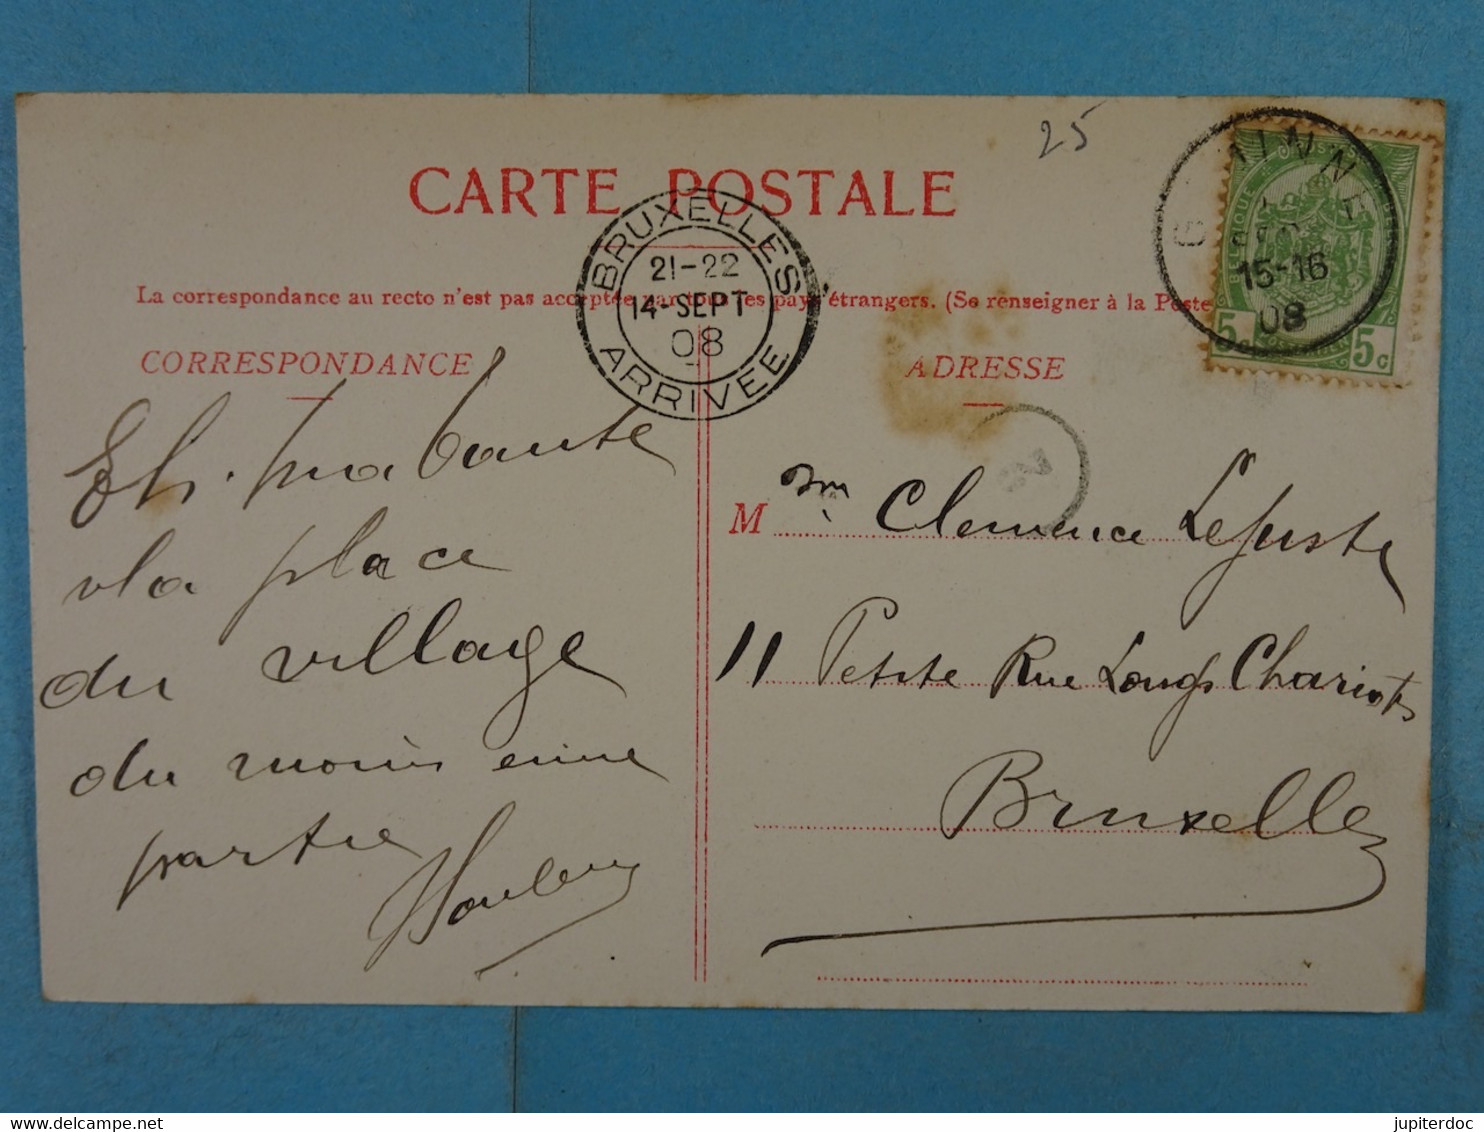 25
CARTE POSTALE
BRUXELLES
21-22
14-SEPT
08
ARRIVÉE
15-16
08
5 5c
La correspondance au recto n'est pas acceptée par tous les pays étrangers. (Se renseigner à la Poste
CORRESPONDANCE
ADRESSE
Eh. ma tante
vla place
du village
du moins eune
partie
M me Clemence Lejuste
11 Petite Rue Longs Chariots
Bruxelles
delcampe.net
jupiterdoc